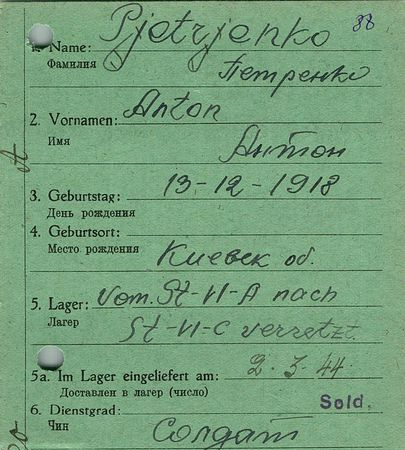 Pjetrjenko 88
1. Name:
Фамилия Петренко
Anton
2. Vornamen:
Имя Антон
13-12-1918
3. Geburtstag:
День рождения
4. Geburtsort:
Место рождения Киевск об.
5. Lager: vom. St-VI-A nach
Лагерь St-VI-C verretzt.
5a. Im Lager eingeliefert am: 2.3.44.
Доставлен в лагерь (число)
6. Dienstgrad: Sold.
Чин Солдат